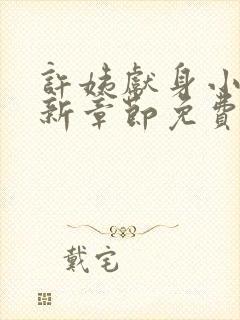 許姨獻身小
新章節免費
戴宅